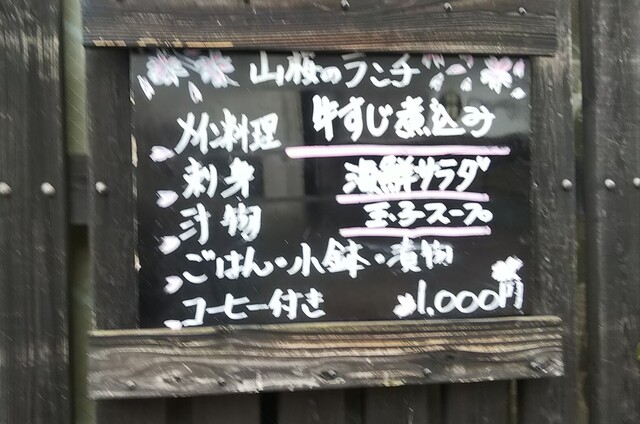 山桜のランチ
メイン料理 牛すじ煮込み
刺身 海鮮サラダ
汁物 玉子スープ
ごはん・小鉢・漬物
コーヒー付き 1,000円